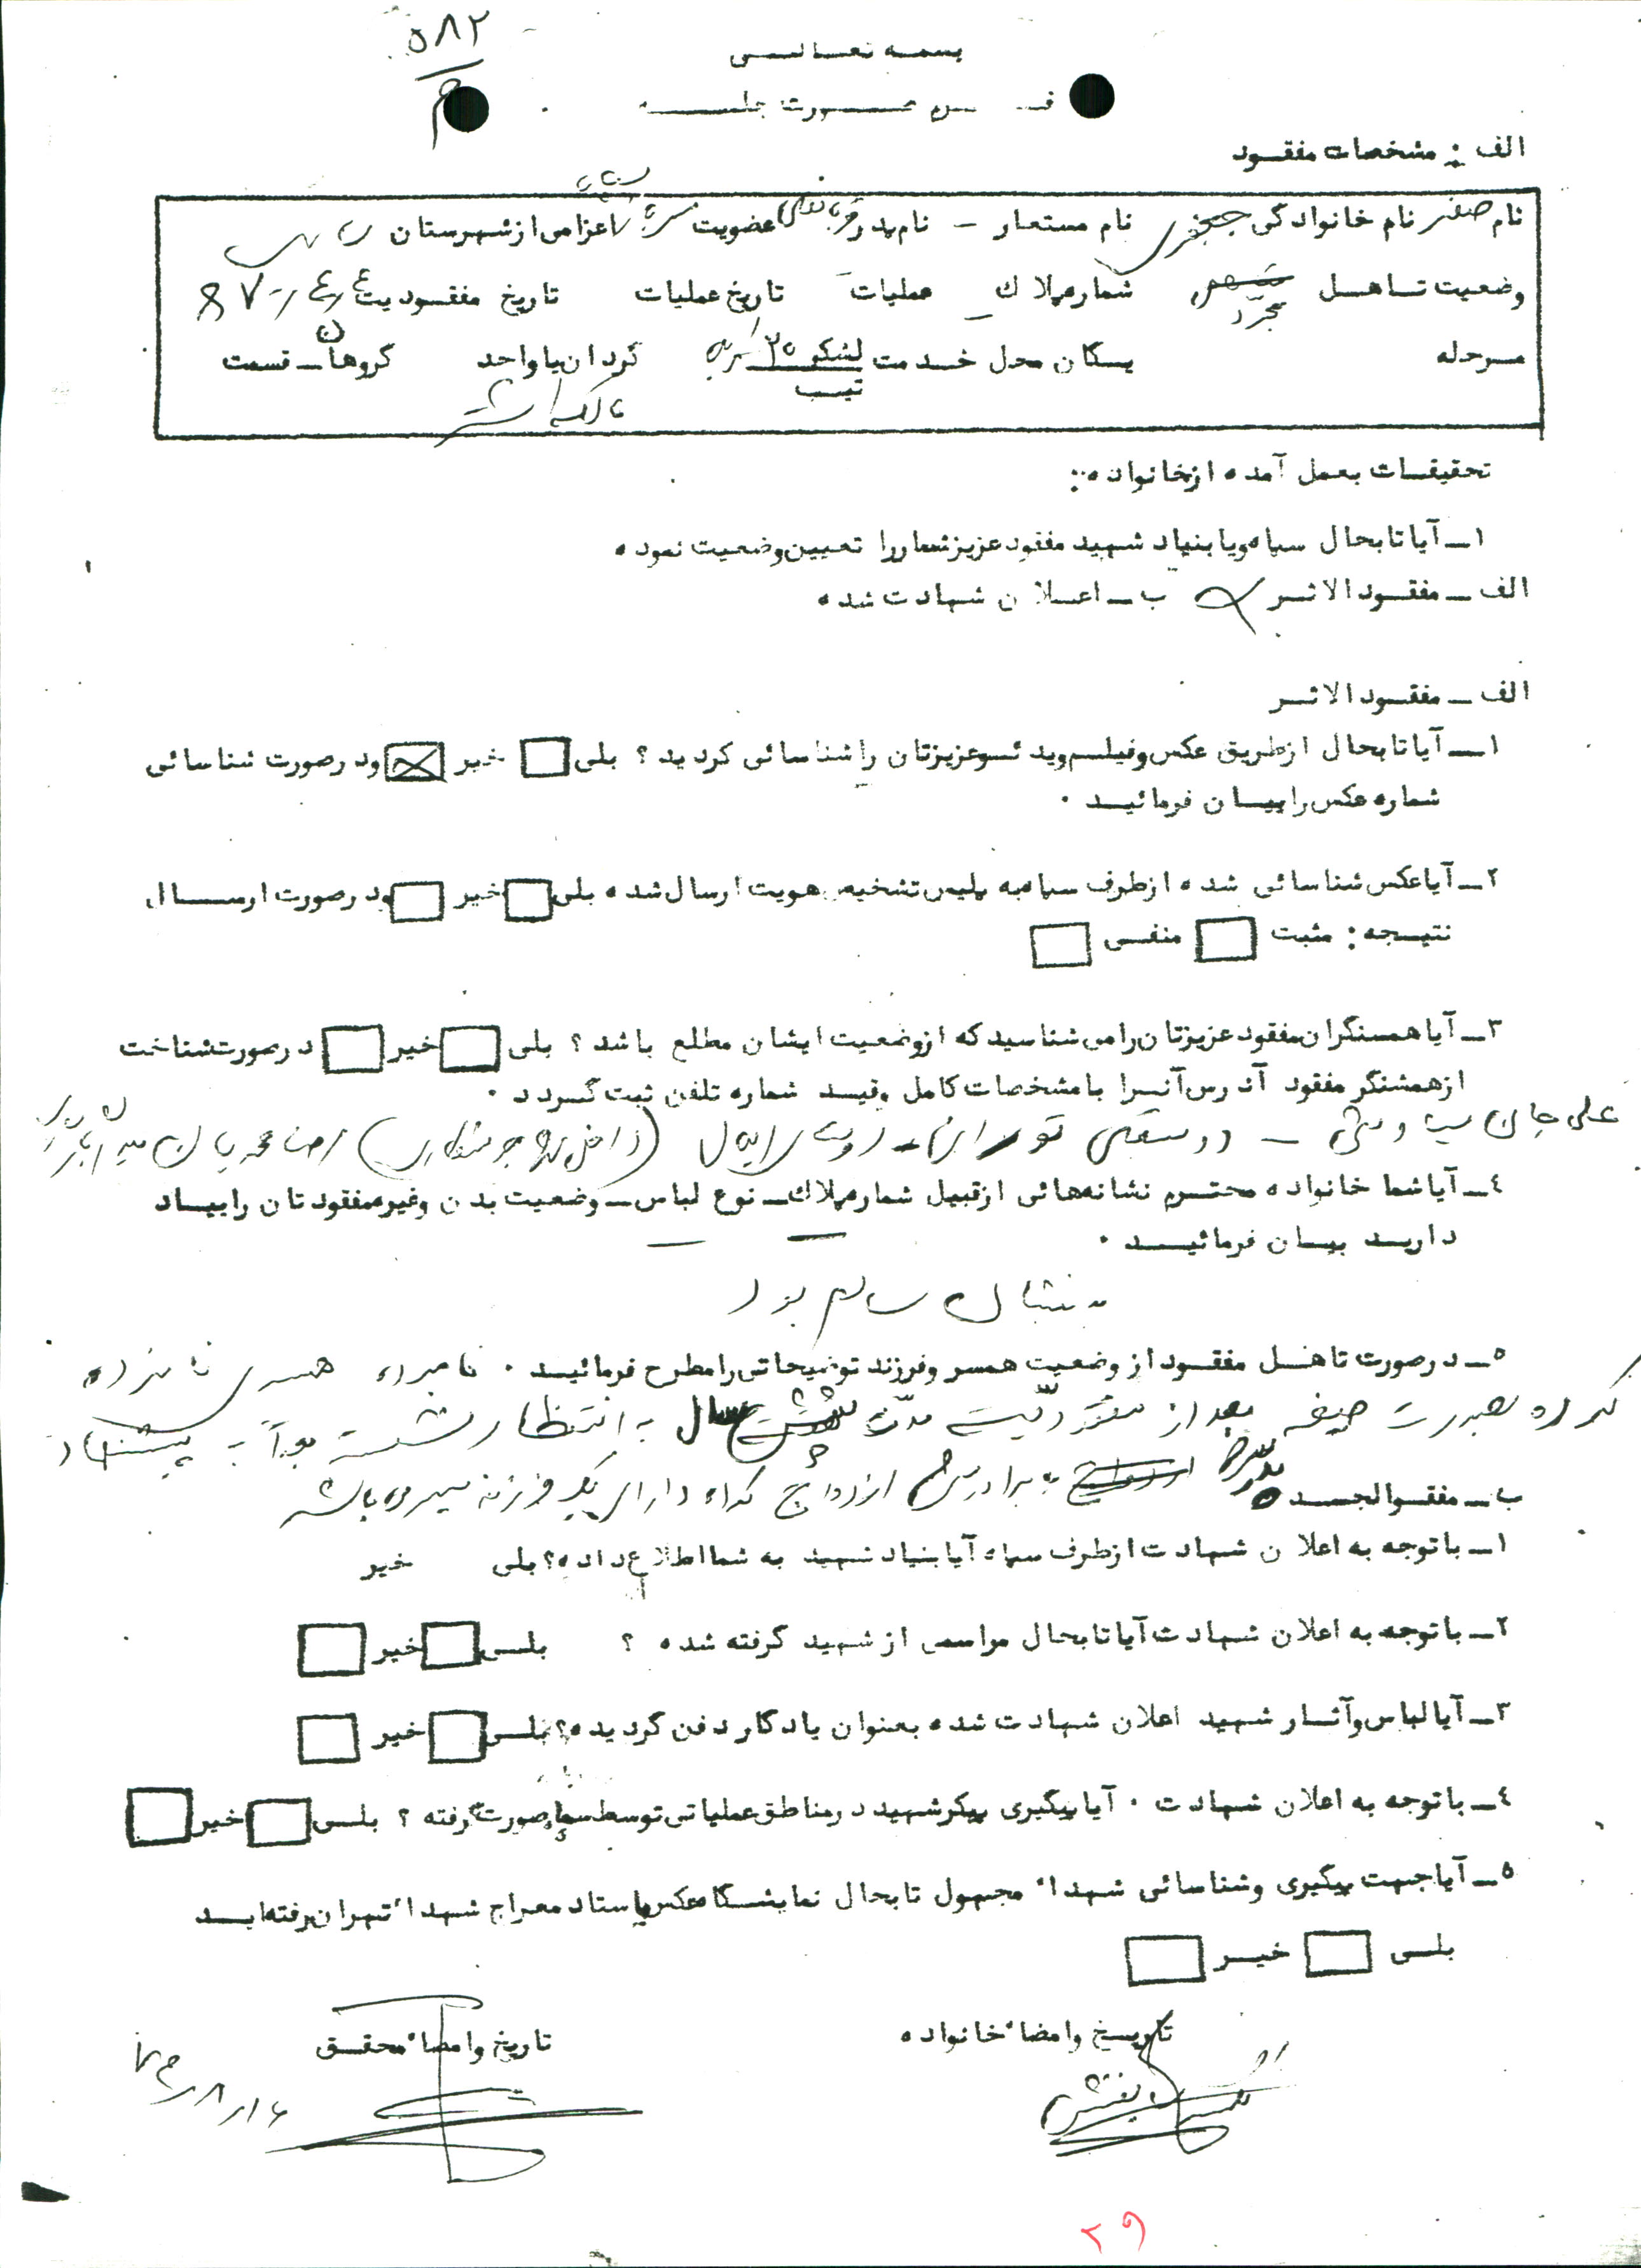 ۵۸۲
م
بسمه تعالی
فرم صورت جلسه
الف : مشخصات مفقود
نام صفر نام خانوادگی جعفری نام مستعار – نام پدر عضویت اعزامی از شهرستان
وضعیت تاهل مجرد شماره پلاک – عملیات – تاریخ عملیات تاریخ مفقودیت
مرحله یگان محل خدمت لشکر ۲۵ کربلا گردان یا واحد گروهان – قسمت
تیپ مالک اشتر
تحقیقات بعمل آمده از خانواده :
۱ – آیا تا بحال سپاه و یا بنیاد شهید مفقود عزیز شما را تعیین وضعیت نموده
الف – مفقود الاثر ب – اعلان شهادت شده
الف – مفقود الاثر
۱ – آیا تا بحال از طریق عکس و فیلم ویدئو عزیزتان را شناسائی کردید ؟ بلی خیر و در صورت شناسائی
شماره عکس را بیان فرمائید .
۲ – آیا عکس شناسائی شده از طرف سپاه به پلیس تشخیص هویت ارسال شده بلی خیر و در صورت ارسال
نتیجه : مثبت منفی
۳ – آیا همسنگران مفقود عزیزتان را می شناسید که از وضعیت ایشان مطلع باشد ؟ بلی خیر در صورت شناخت
از همسنگر مفقود آدرس آنرا با مشخصات کامل و قید شماره تلفن ثبت گردد .
علی جان سیاوشی –
۴ – آیا شما خانواده محترم نشانه هائی از قبیل شماره پلاک – نوع لباس – وضعیت بدن و غیره مفقودتان را بیاد
دارید بیان فرمائید .
سالم بود
۵ – در صورت تاهل مفقود از وضعیت همسر و فرزند توضیحاتی را مطرح فرمائید . نامبرده همسری نامزده
کرده بصورت صیغه بعد از مفقودیت مدت شش سال به انتظار نشست بعداً به پیشنهاد
پدرش به برادرش ازدواج کرده دارای یک فرزند پسر می باشد
ب – مفقوالجسد
۱ – با توجه به اعلان شهادت از طرف سپاه آیا بنیاد شهید به شما اطلاع داده ؟ بلی خیر
۲ – با توجه به اعلان شهادت آیا تا بحال مراسمی از شهید گرفته شده ؟ بلی خیر
۳ – آیا لباس و آثار شهید اعلان شهادت شده بعنوان یادگار دفن گردیده ؟ بلی خیر
۴ – با توجه به اعلان شهادت . آیا پیگیری پیکر شهید در مناطق عملیاتی توسط سپاه صورت گرفته ؟ بلی خیر
۵ – آیا جهت پیگیری و شناسائی شهداء مجهول تا بحال نمایشگاه عکس یا ستاد معراج شهداء تهران رفته اید
بلی خیر
تاریخ و امضاء خانواده تاریخ و امضاء محقق
۲۹